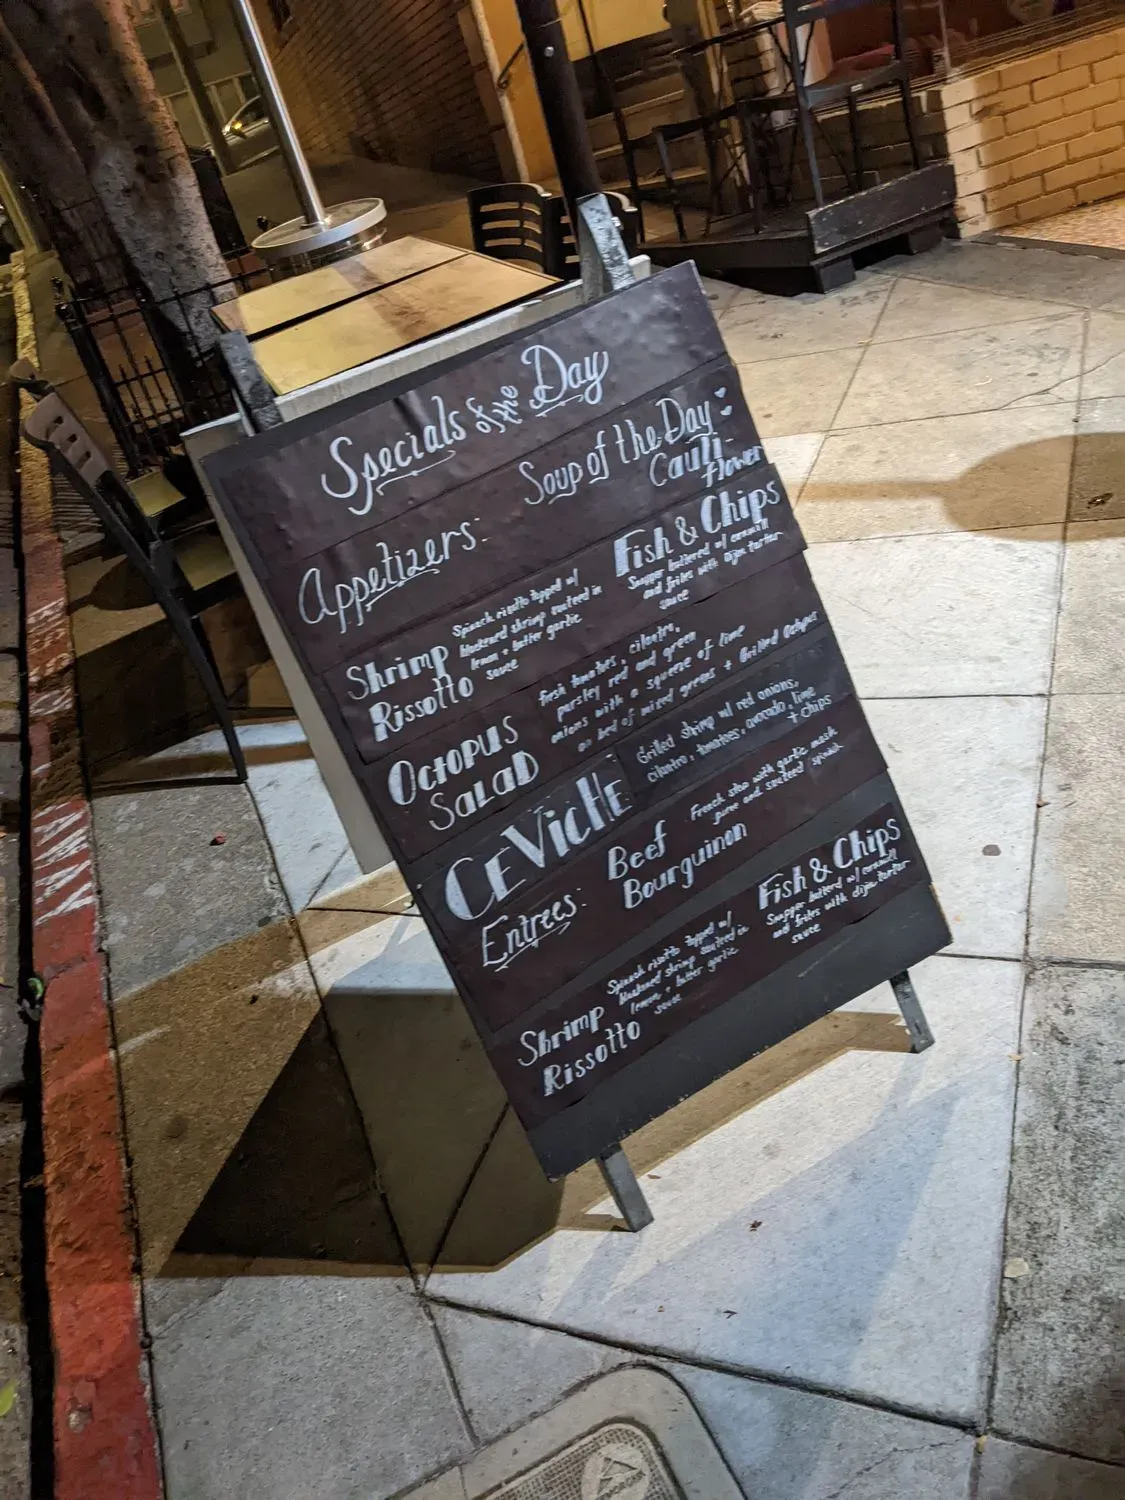 Specials of the Day
Appetizers:
Soup of the Day:
Cauli-
flower
Shrimp
Rissotto
Spinach risotto topped w/
blackened shrimp sauteed in
lemon + butter garlic
sauce
Fish & Chips
Snapper battered w/
and frites with dijon tartar
sauce
Octopus
Salad
fresh tomatoes, cilantro,
parsley red and green
onions with a squeeze of lime
on bed of mixed greens + Grilled Octopus
Ceviche
Grilled shrimp w/ red onions,
cilantro, tomatoes, avocado, lime
+ chips
Entrees:
Beef
Bourguinon
French stew with garlic mash
puree and sauteed spinach
Shrimp
Rissotto
Spinach risotto topped w/
blackened shrimp sauteed in
lemon + butter garlic
sauce
Fish & Chips
Snapper batterd w/
and frites with dijon tartar
sauce
AWAY